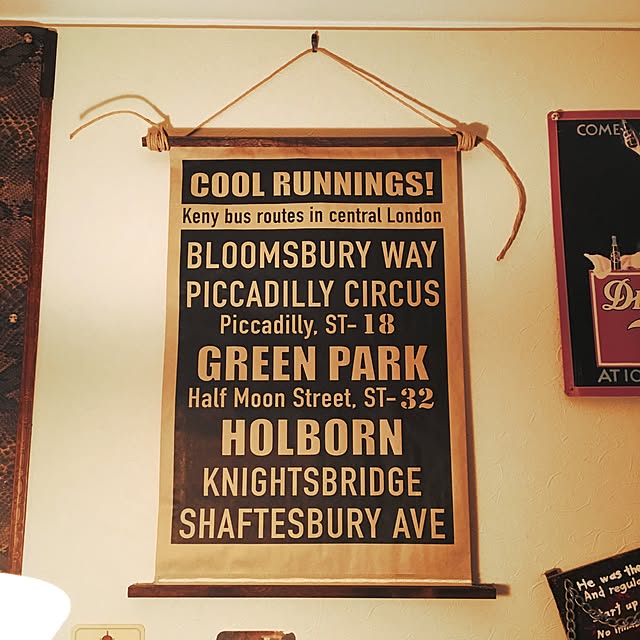 COOL RUNNINGS!
Keny bus routes in central London
BLOOMSBURY WAY
PICCADILLY CIRCUS
Piccadilly, ST-18
GREEN PARK
Half Moon Street, ST-32
HOLBORN
KNIGHTSBRIDGE
SHAFTESBURY AVE
COME
AT
He was the
And regul
up
No